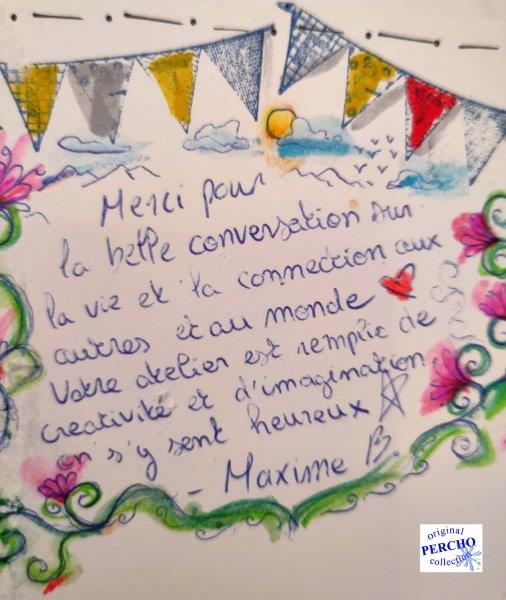 Merci pour
la belle conversation sur
la vie et la connection aux
autres et au monde
Votre atelier est remplie de
creativité et d'imagination
on s'y sent heureux
- Maxime B.
original
PERCHO
collection